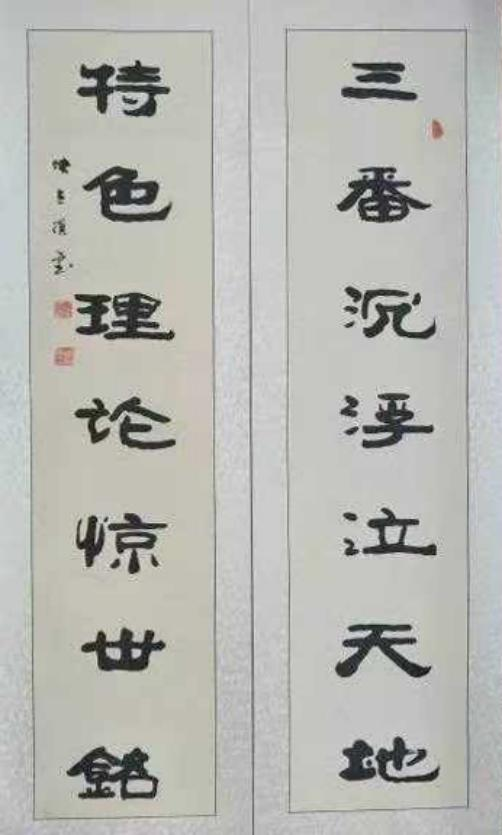 三番沉浮泣天地
特色理论惊世铭